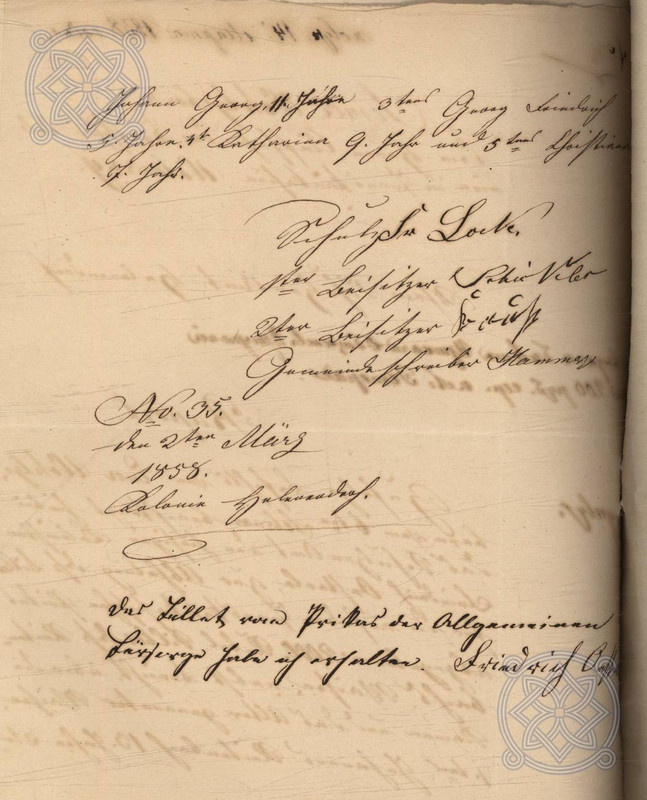 Johann Georg, 11. Jahre 3tens Georg Friedrich
Jahre, 4t Katharina 9. Jahr und 5tens Christian
7. Jahr.
Schulz Fr Lock.
1ter Beisitzer
2ter Beisitzer
Gemeindeschreiber Hammer
No. 35.
den 2ten März
1858.
Kolonie Helenendorf.
Das Billet vom Prikas der Allgemeinen
Fürsorge habe ich erhalten. Friedrich